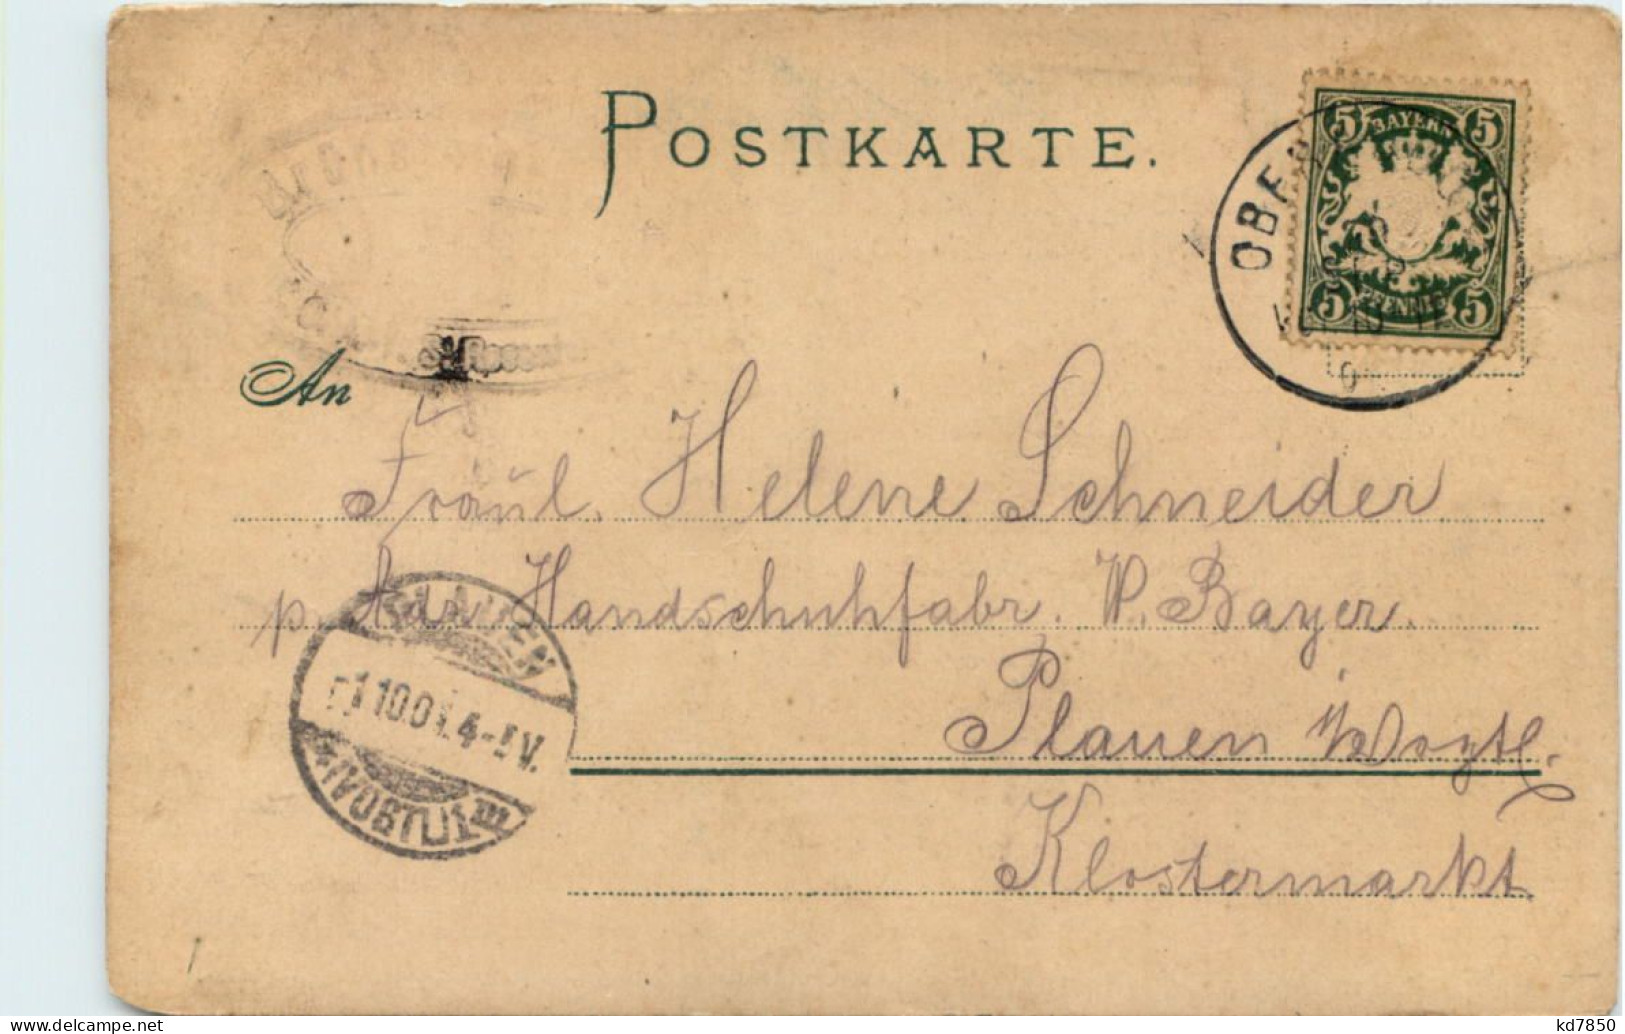 POSTKARTE.
5 BAYERN 5
5 PFENNIG 5
OBER
An
Fräul. Helene Schneider
p. Adr. Handschuhfabr. W. Bayer.
Plauen i/Vogtl.
Klostermarkt
PLAUEN
1.10.01. 4-5 V.
(VOGTL)
kd7850